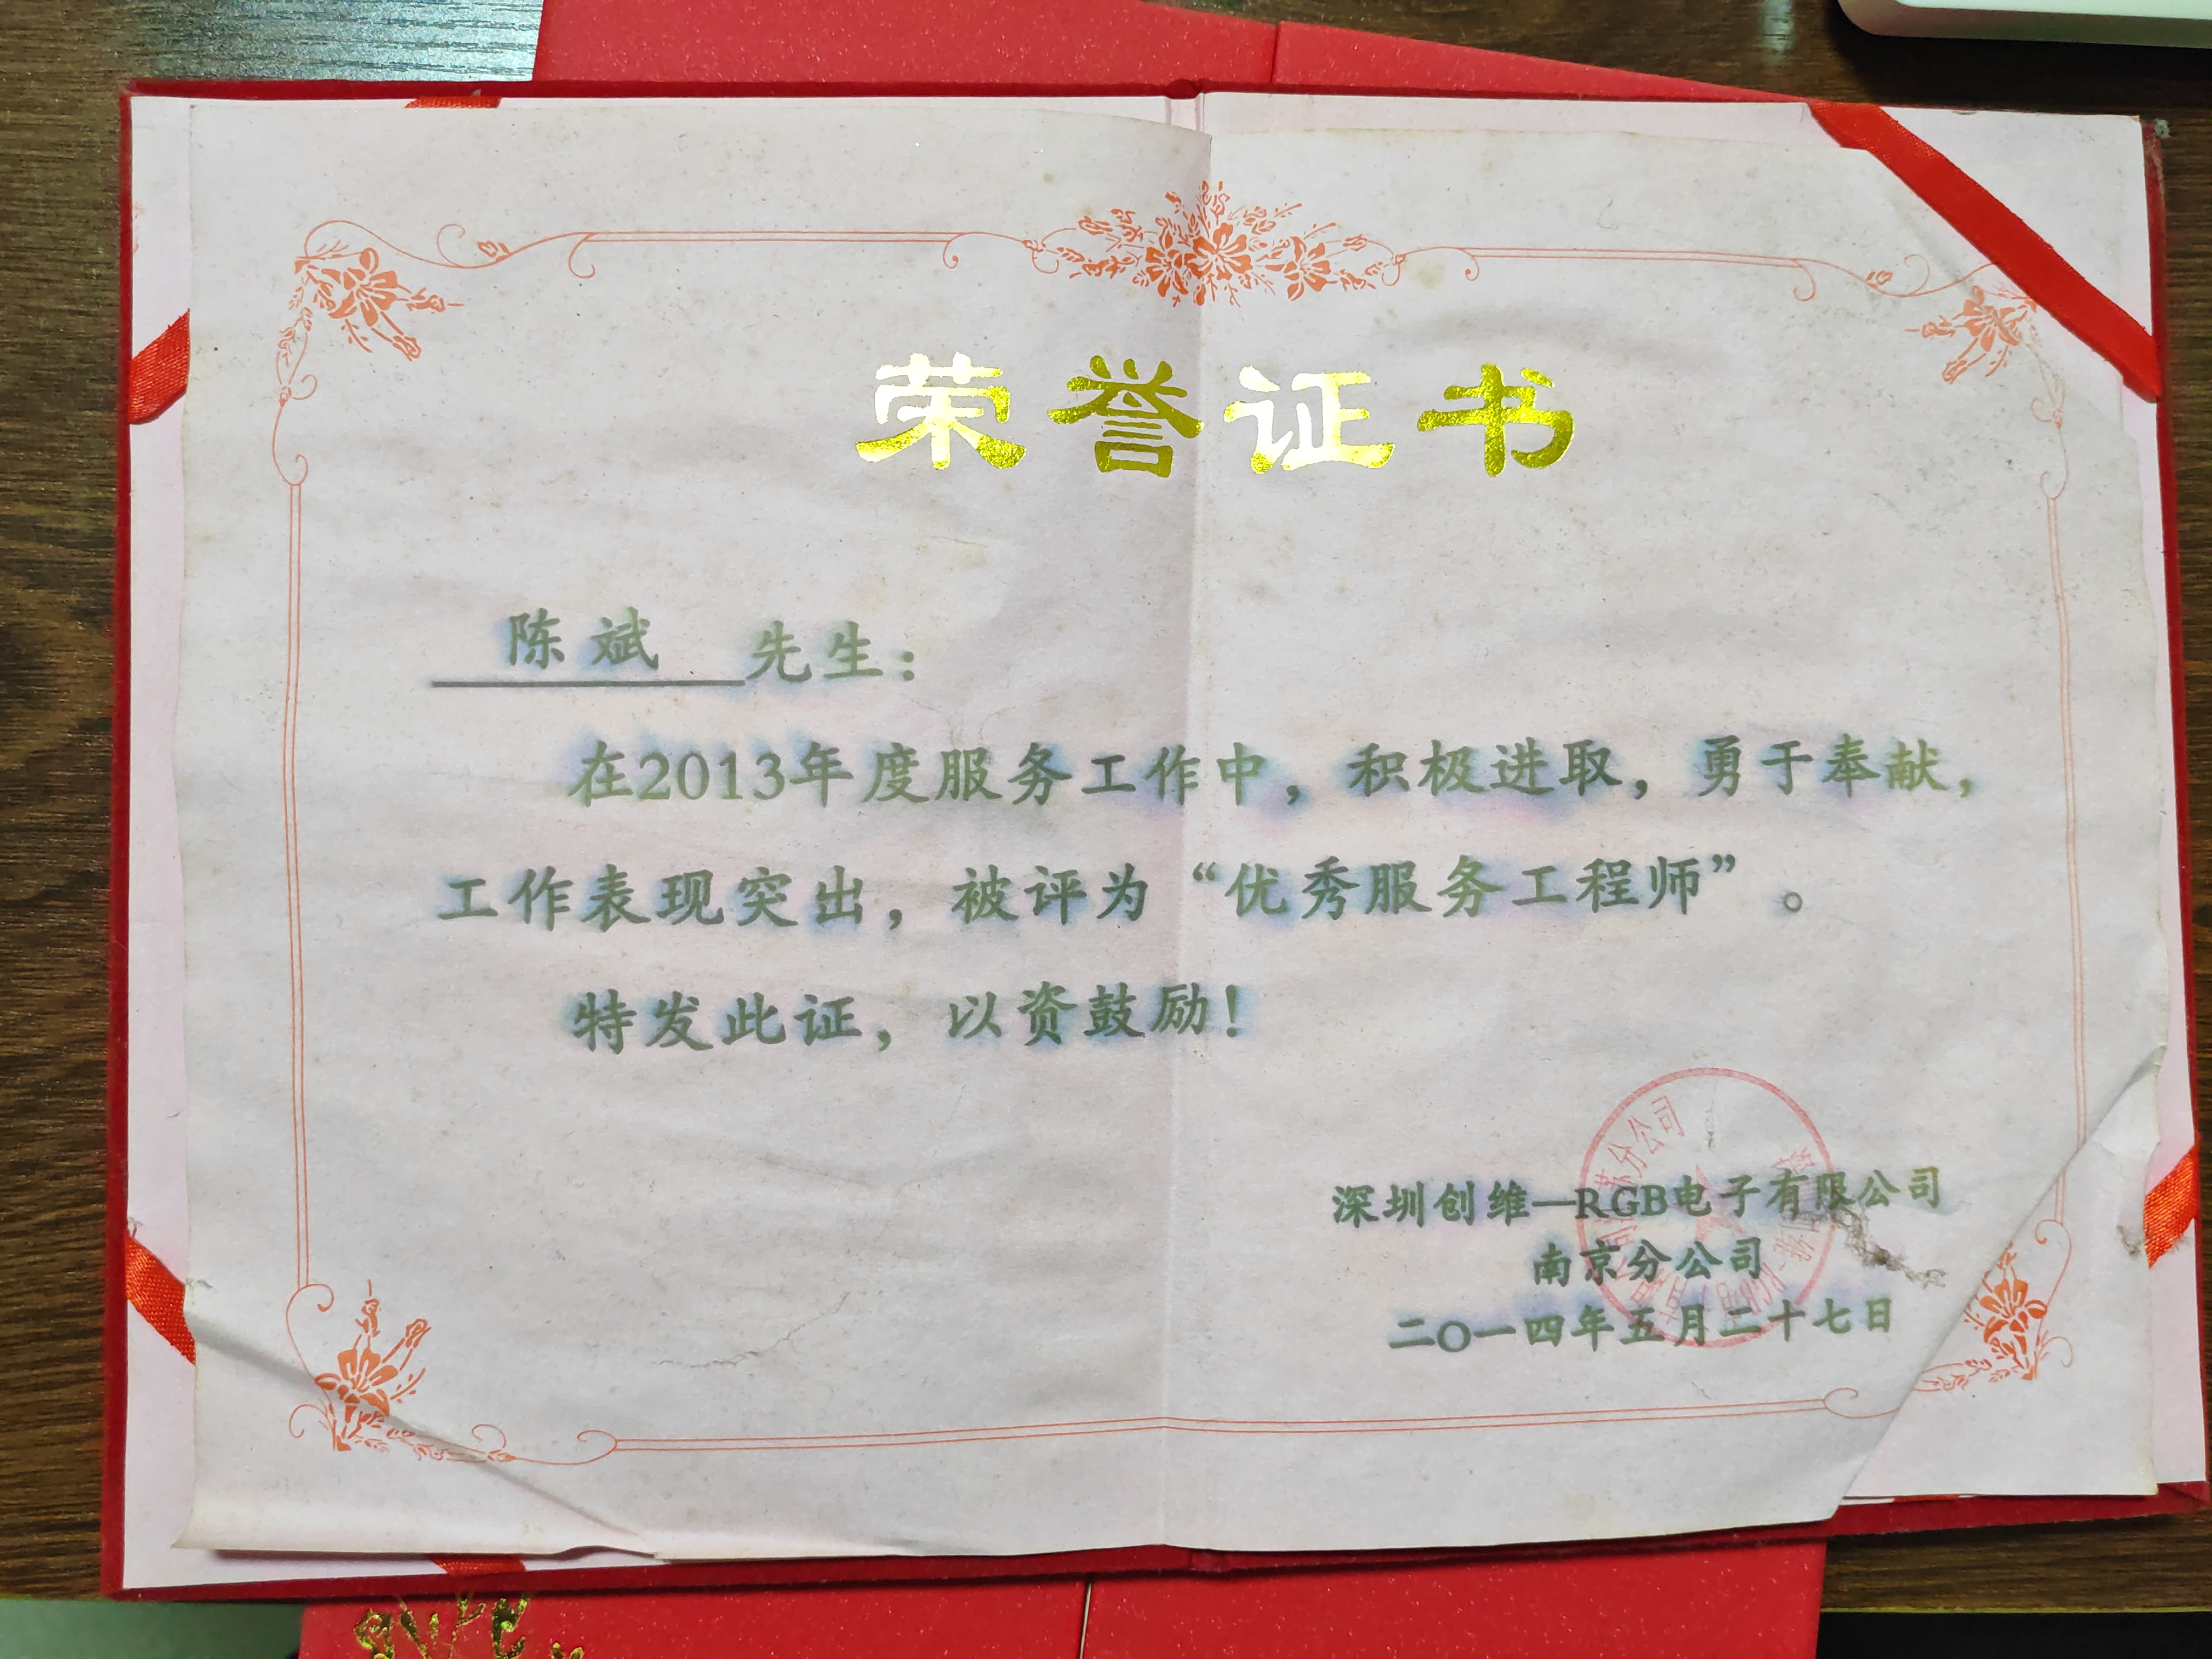 荣誉证书
陈斌 先生：
在2013年度服务工作中，积极进取，勇于奉献，
工作表现突出，被评为“优秀服务工程师”。
特发此证，以资鼓励！
深圳创维—RGB电子有限公司
南京分公司
二〇一四年五月二十七日
分公司